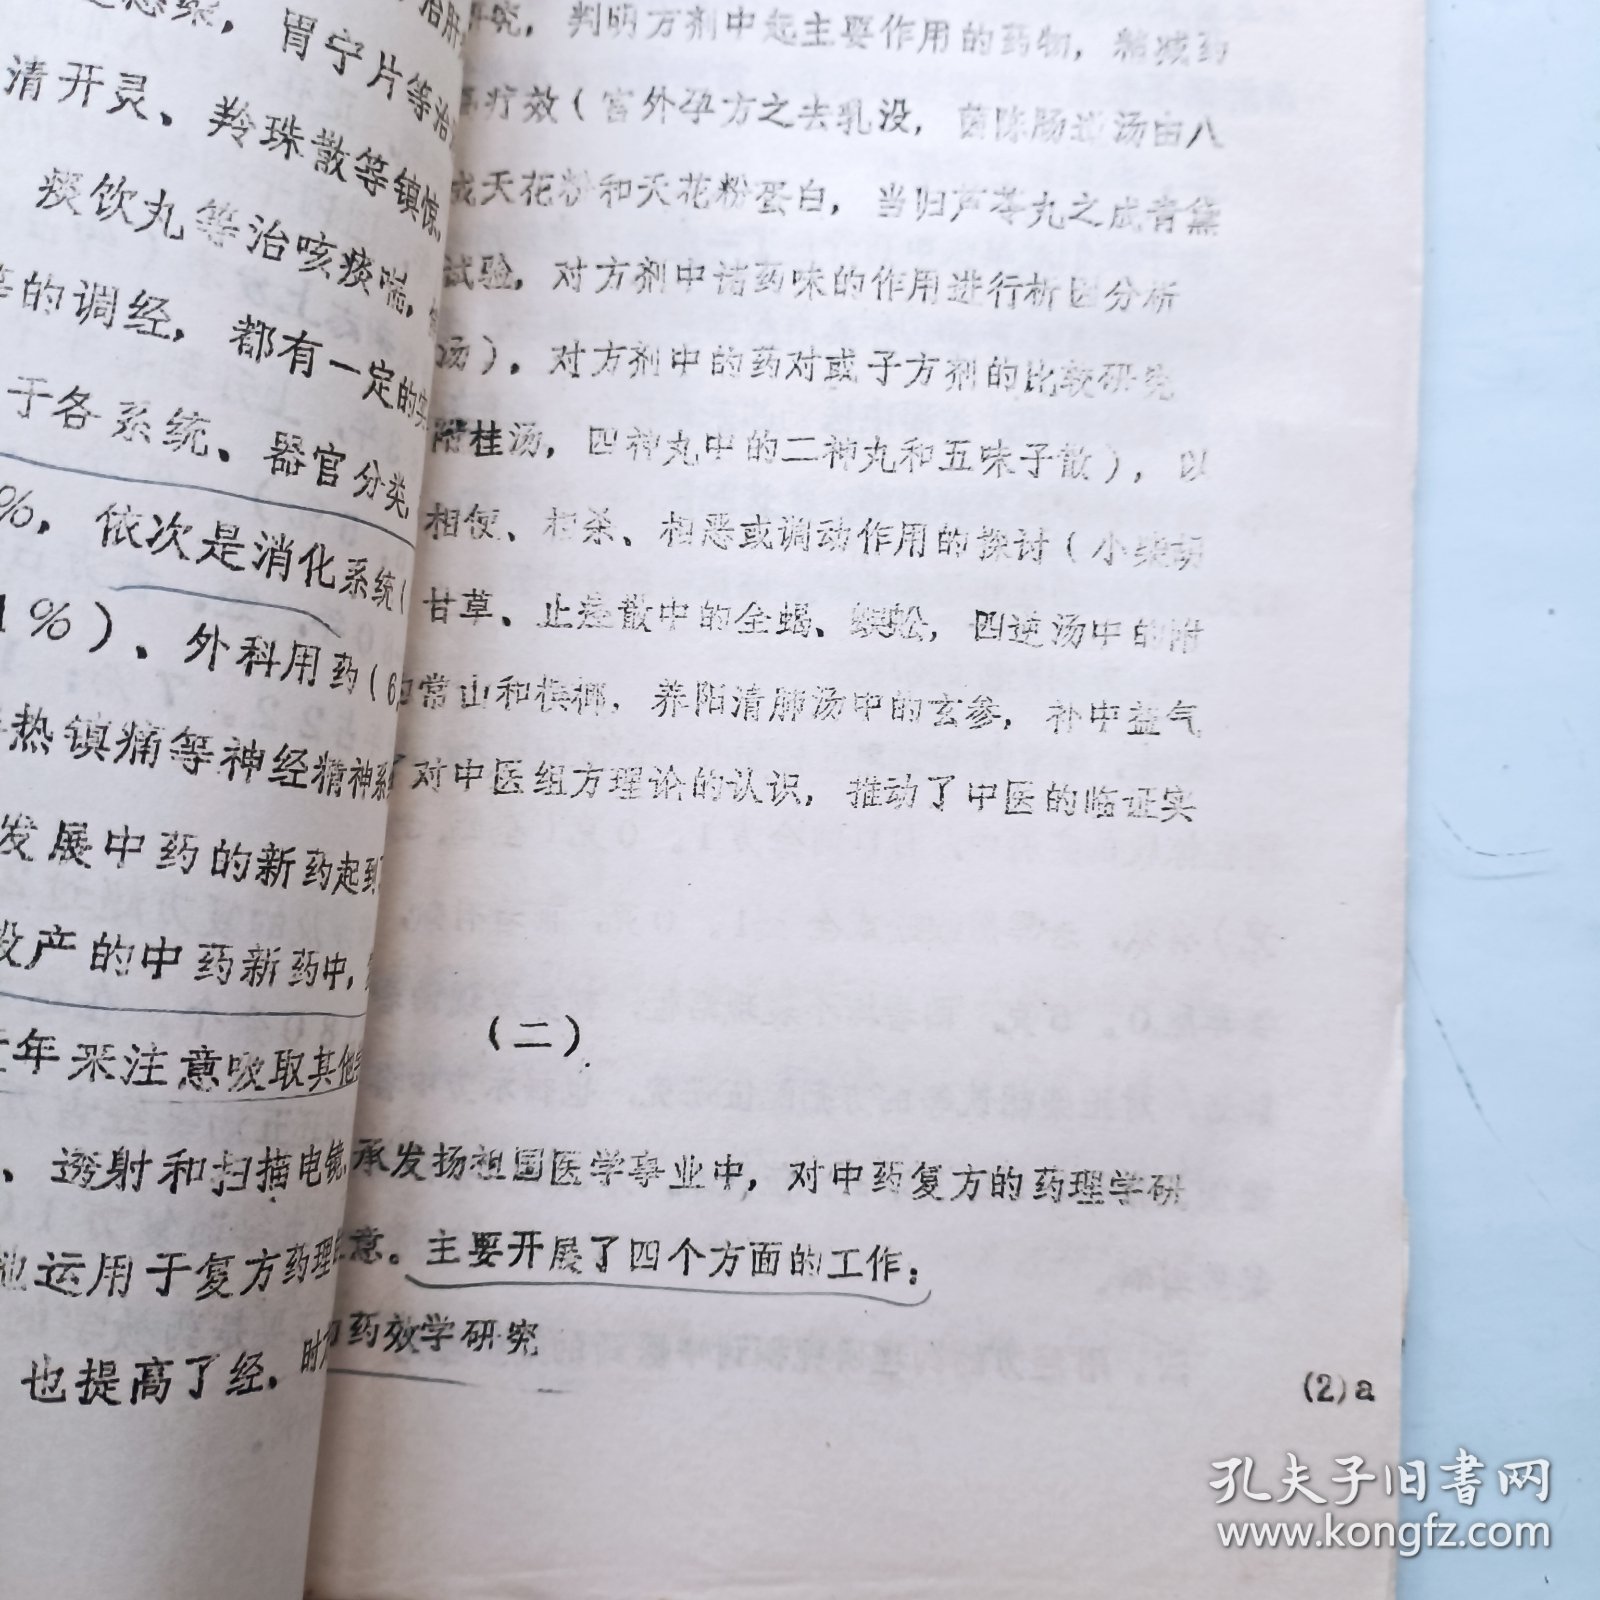 胃宁片等治
清开灵、羚珠散等镇惊
痰饮丸等治咳痰喘,
等的调经,都有一定的实
于各系统、器官分类
%,依次是消化系统(
1%)、外科用药(6
热镇痛等神经精神系
发展中药的新药起到
投产的中药新药中,
年来注意吸取其他
、透射和扫描电镜
地运用于复方药理
也提高了经.
究,判明方剂中起主要作用的药物,精减药
疗效(宫外孕方之去乳没,茵陈肠道汤由八
成天花粉和天花粉蛋白,当归芦荟丸之成青黛
试验,对方剂中诸药味的作用进行析因分析
汤)。对方剂中的药对或子方剂的比较研究
附桂汤,四神丸中的二神丸和五味子散),以
相使、相杀、相恶或调动作用的探讨(小柴胡
甘草、止痉散中的全蝎、蜈蚣,四逆汤中的附
常山和槟榔,养阴清肺汤中的玄参,补中益气
对中医组方理论的认识,推动了中医的临证实
(二)
承发扬祖国医学事业中,对中药复方的药理学研
意。主要开展了四个方面的工作:
药效学研究
(2)a
孔夫子旧书网
www.kongfz.com